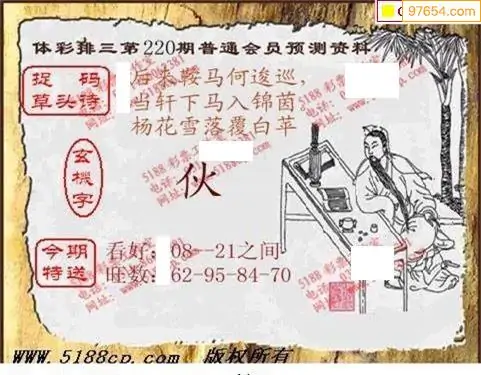 97654.com
体彩排三第220期普通会员预测资料
捉 码
草头诗
后来鞍马何逡巡,
当轩下马入锦茵
杨花雪落覆白苹
玄機字
伙
今期
特送
看好:08--21之间
旺数:62-95-84-70
www.5188cp.com 版权所有